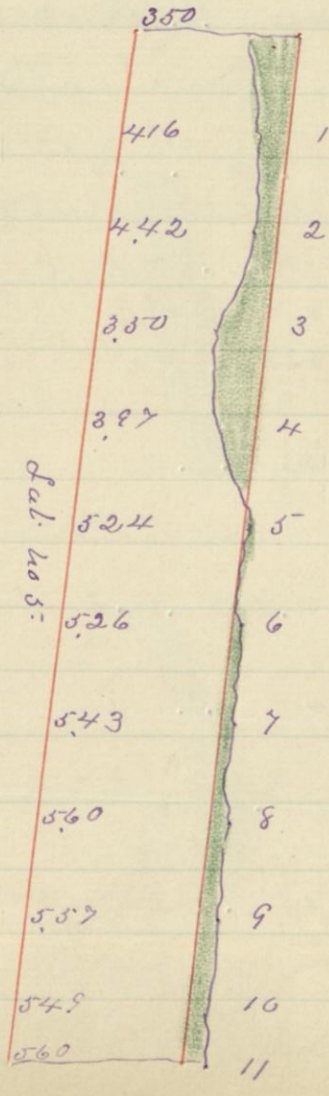 350
416 1
442 2
350 3
397 4
524 5
526 6
543 7
560 8
557 9
549 10
560 11
Lat. no 5.